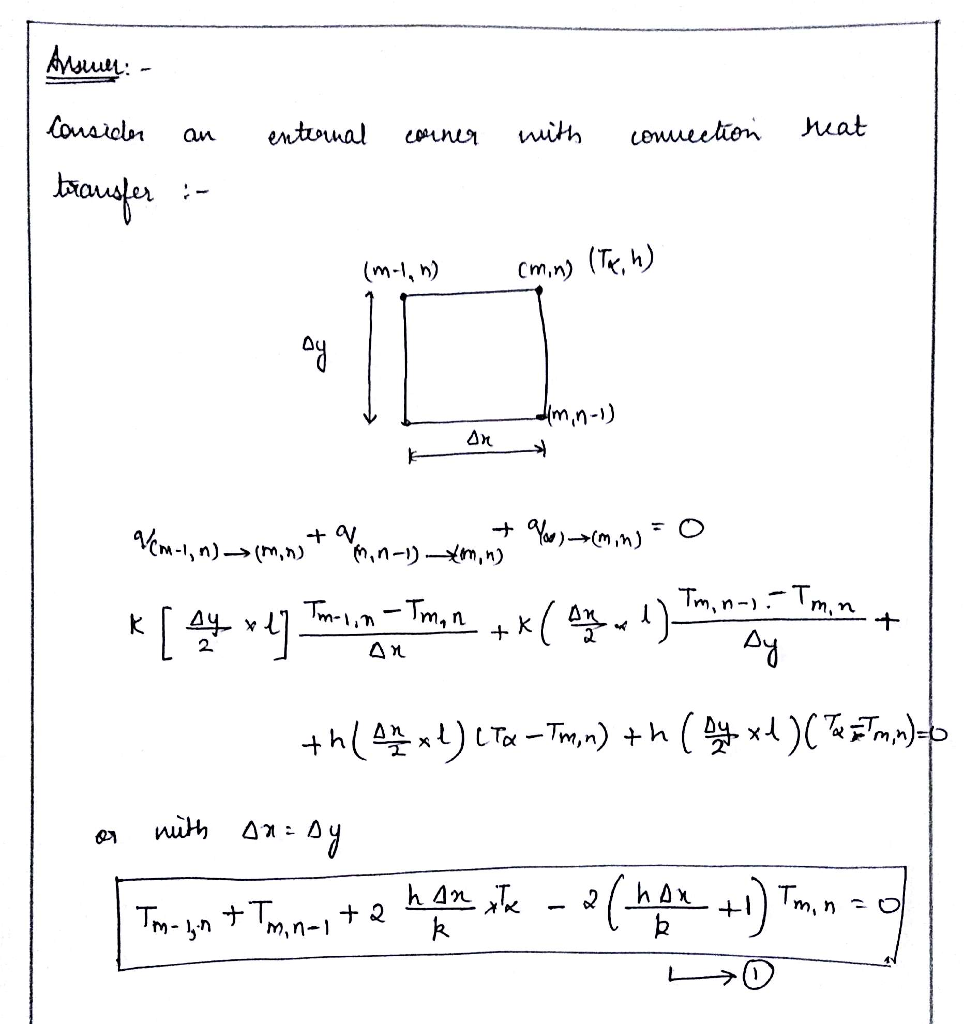 Answer: -
Consider an external corner with convection heat
transfer :-
(m-1, n) (m,n) (T∝, h)
Δy
(m,n-1)
Δx
q(m-1, n) → (m,n) + q(m,n-1) → (m,n) + q(∞) → (m,n) = 0
K [ Δy/2 × 1 ] (Tm-1,n - Tm,n)/Δx + K ( Δx/2 × 1 ) (Tm,n-1 - Tm,n)/Δy +
+ h ( Δx/2 × 1 ) (T∝ - Tm,n) + h ( Δy/2 × 1 ) (T∝ - Tm,n) = 0
or with Δx = Δy
Tm-1,n + Tm,n-1 + 2 hΔx/k × T∝ - 2 ( hΔx/k + 1 ) Tm,n = 0
→ ①